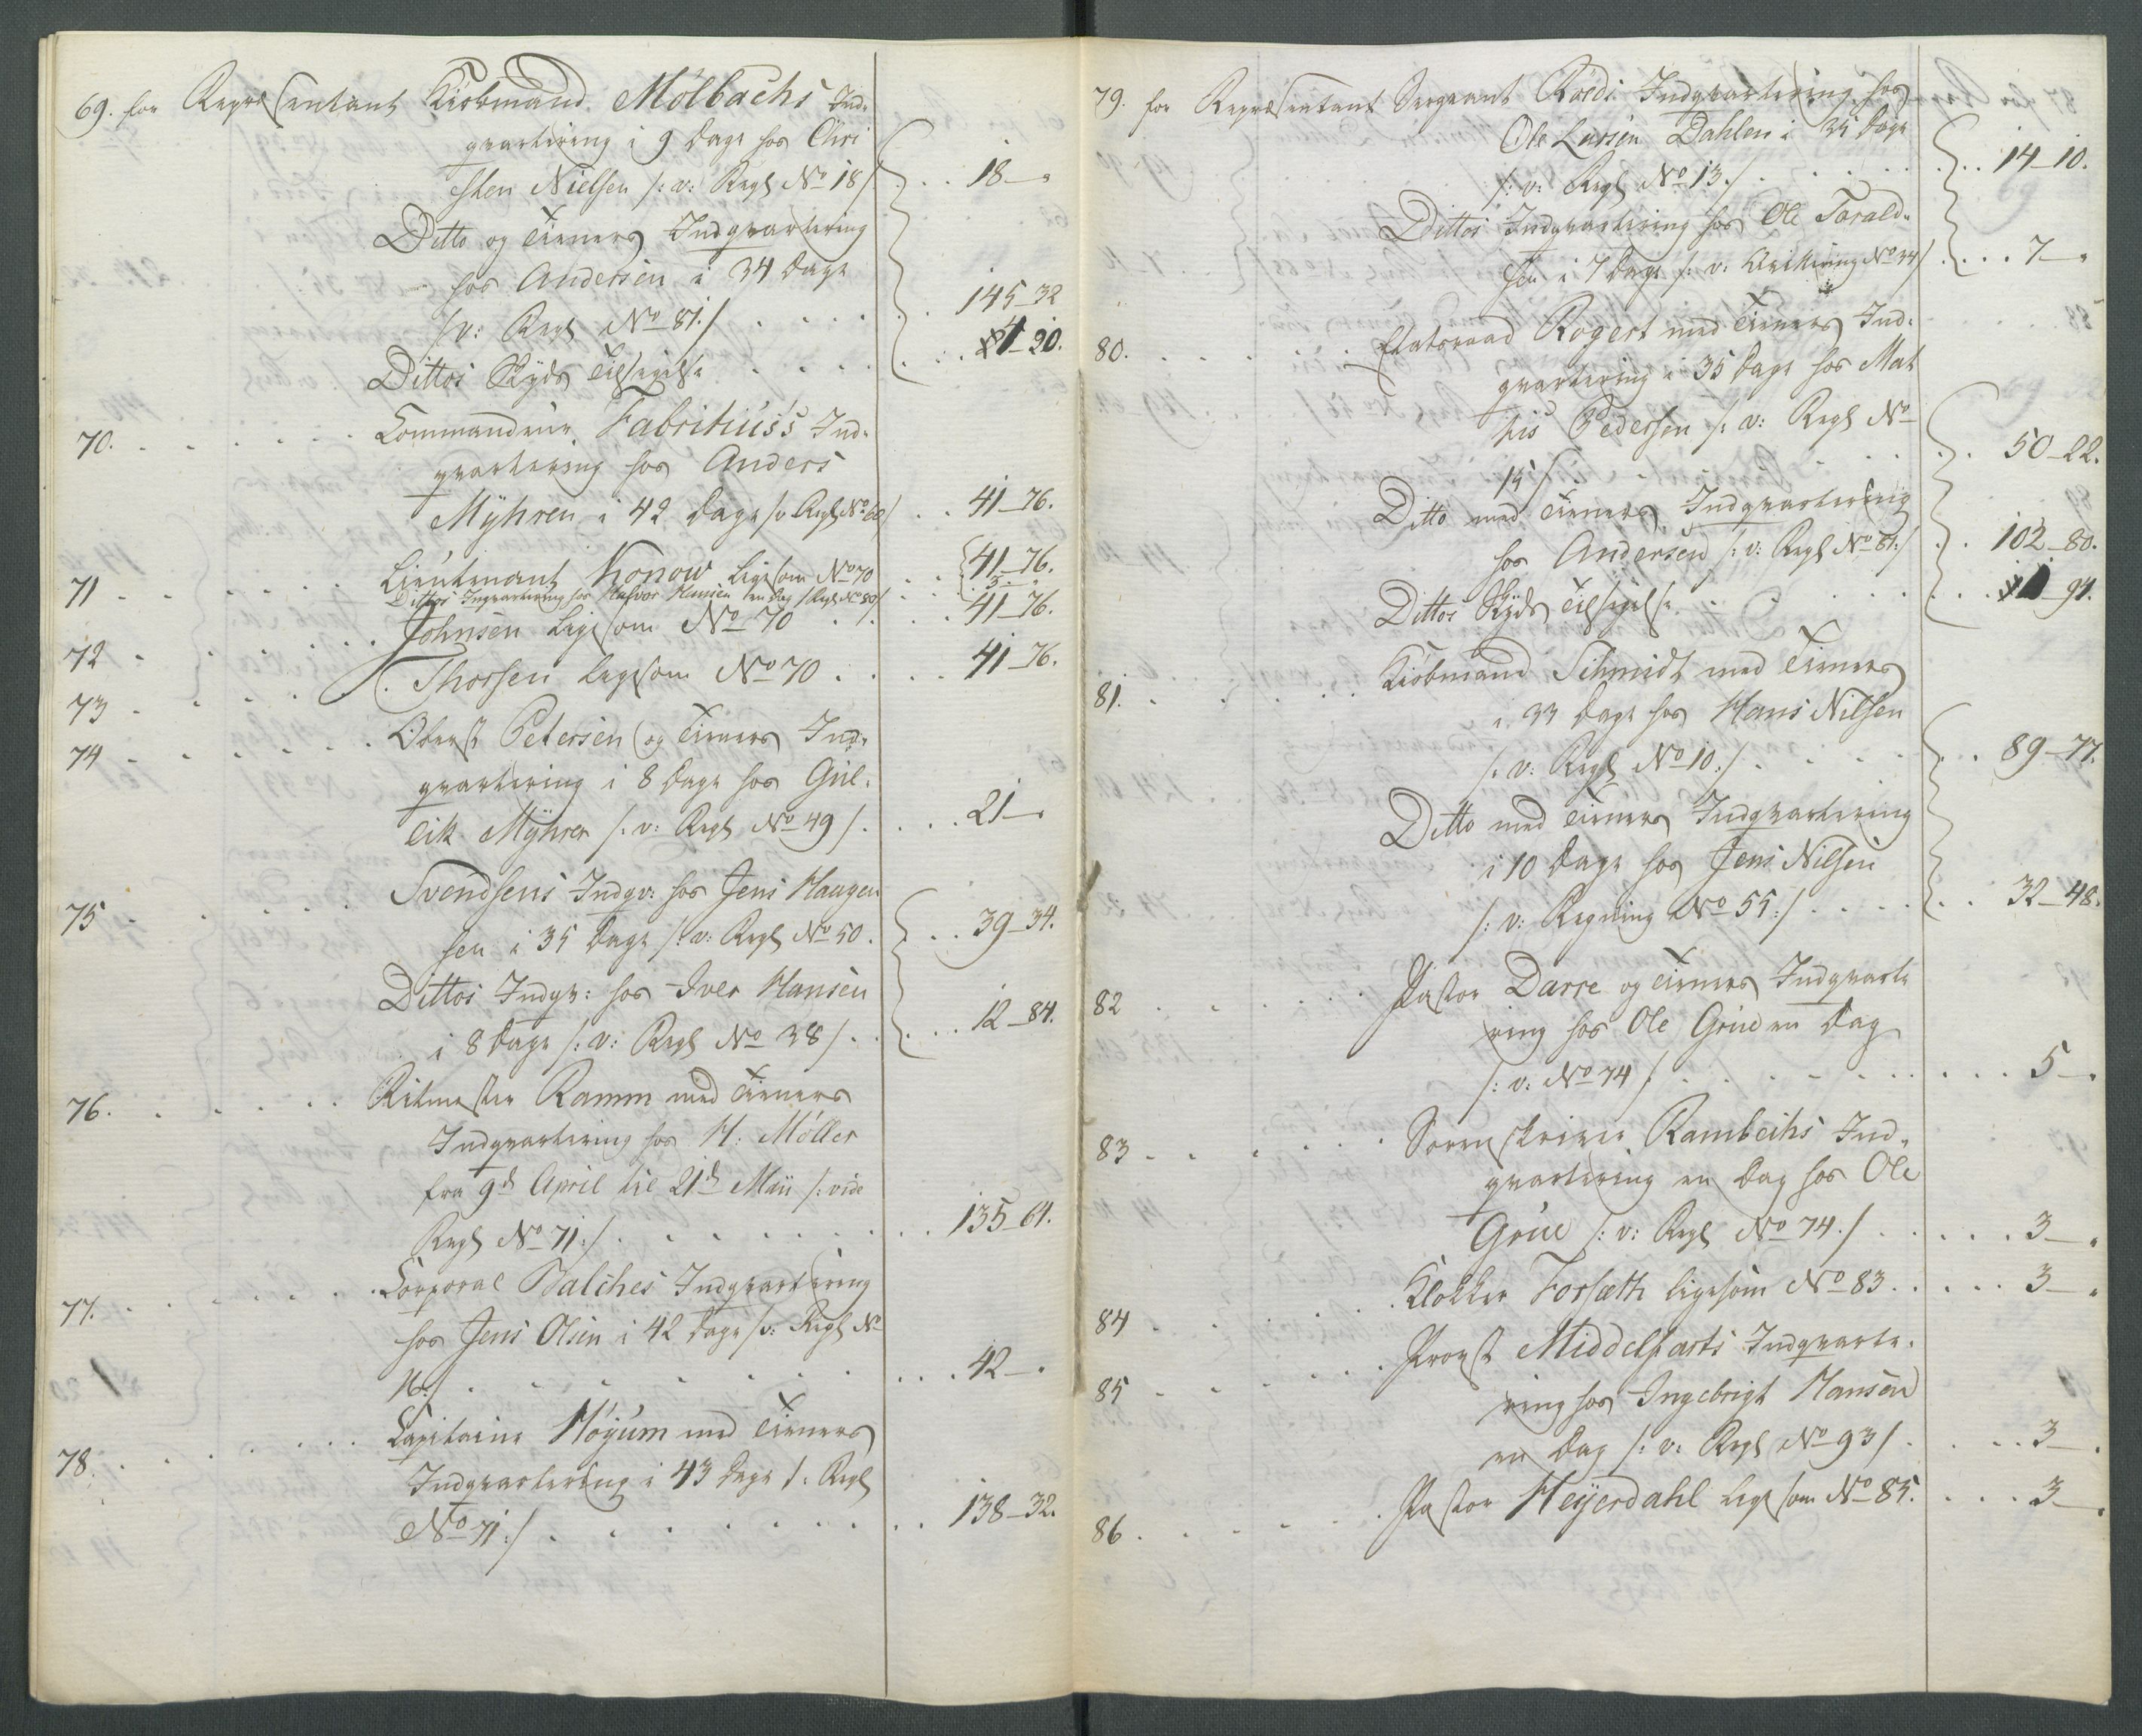 69. for Repræsentant Kiøbmand Mölbachs Ind-
qvartering i 9 Dage hos Chri
sten Nielsen /: v: Regl No 18/ . . 18_"
Ditto og Tieners Indqvartering
hos Andersen i 34 Dage
/v: Regl No 81./ . . . . . 145_32
Dittos Skyds Tilsigelse . . . . 1_20.
70. . . . . . Commandeur Fabritius's Ind-
qvartering hos Anders
Myhren i 42 Dage /v Regl No 60/ . . 41_76.
71 . . . . . Lieutenant Konow ligesom No 70 . . 41_76.
Dittos Inqvartering hos Halvor Hansen en Dag /Regl No 80/ . . 3. "
72 . . . . . Johnsen ligesom No 70 . . . . 41_76.
73 . . . . . Thorsen ligesom No 70 . . . . 41_76.
74 . . . . . Oberst Petersen og Tieners Ind-
qvartering i 8 Dage hos Gul-
lik Myhrer /: v: Regl No 49/ . . . . 21_"
75 . . . . . Svendsens Indqv: hos Jens Haugen
sen i 35 Dage /: v: Regl No 50. . . 39_34.
Dittos Indqv: hos Iver Hansen
i 8 Dage /: v: Regl No 38/ . . . . 12_84.
76. . . . . . Ritmester Ramm med Tieners
Indqvartering hos H: Möller
fra 9d April til 21d Maii /: vide
Regl No 71:/ . . . . . . . 135_64.
77. . . . . . Corporal Balches Indqvartering
hos Jens Olsen i 42 Dage /v: Regl No
16:/ . . . . . . . . 42_"
78. . . . . . Capitaine Höyum med Tieners
Indqvartering i 43 Dage /: Regl
No 71:/ . . . . . . . . 138_32.
79. for Repræsentant Sergeant Roeds Indqvartering hos
Ole Larsen Dahlen i 35 Dage
/: v: Regl No 13./ . . . . . . 14_10.
Dittos Indqvartering hos Ole Torald-
sen i 7 Dage /: v: No 34/ . . . . 7_"
80. . . . . . Etatsraad Rogert med Tieners Ind-
qvartering i 35 Dage hos Mat
his Pedersen /: v: Regl No
15/ . . . . . . . 50_22.
Ditto med Tieners Indqvartering
hos Andersen /: v: Regl No 81:/ . . 102_80.
Dittos Skyds Tilsigelse . . . . . 1_94.
81. . . . . . Kiøbmand Schmidt med Tieners
i 33 Dage hos Hans Nilsen
/: v: Regl No 10:/ . . . . . . 89_77.
Ditto med Tieners Indqvartering
i 10 Dage hos Jens Nilsen
/: v: Regning No 55:/ . . . . . . 32_48.
82 . . . . . Pastor Darre og Tieners Indqvarte
ring hos Ole Grue en Dag
/: v: No 74/ . . . . . . . . 5_"
83 . . . . . Sorenskriver Rambechs Ind-
qvartering en Dag hos Ole
Grue /: v: Regl No 74./ . . . . . 3_"
84 . . . . . Klokker Forsæth ligesom No 83. . . . . 3_"
85 . . . . . Provst Middelfarts Indqvarte-
ring hos Ingebrigt Hansen
en Dag /: v: Regl No 93/ . . . . 3_"
86 . . . . . Pastor Heyerdahl ligesom No 85. . . . 3_"